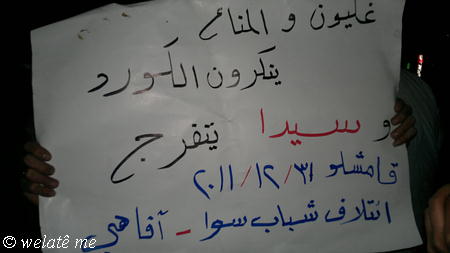 غليون و المناع
ينكرون الكورد
و سيدا يتفرج
قامشلو ٢٠١١/١٢/٣١
ائتلاف شباب سوا - آفاهي
© welatê me